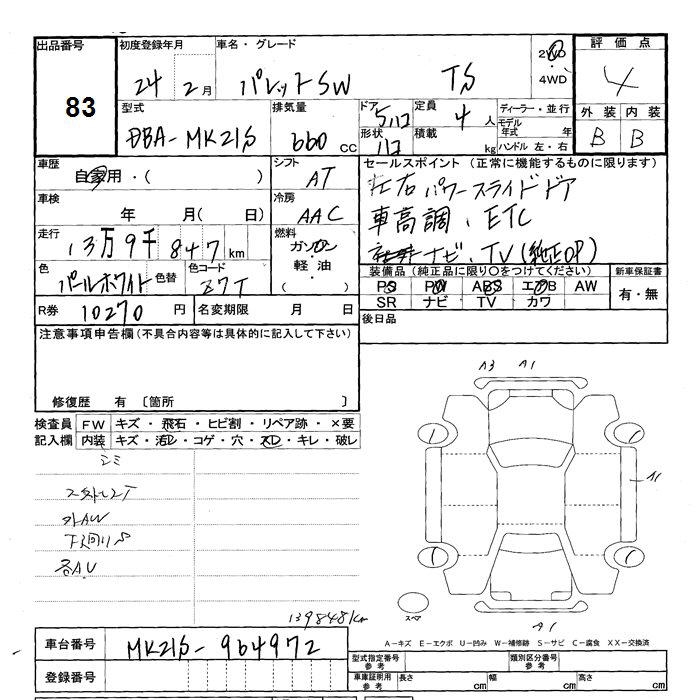 出品番号
83
初度登録年月
24 2月
車名・グレード
パレットSW TS
2WD
4WD
評価点
4
型式
DBA-MK21S
排気量
660 cc
ドア 5ドア
形状
定員 4人
積載 kg
ディーラー・並行
モデル年式 年
ハンドル 左・右
外装 内装
B B
車歴
自家用・( )
シフト
AT
セールスポイント (正常に機能するものに限ります)
左右パワースライドドア
車高調、ETC
ナビ、TV(純正OP)
車検
年 月( 日)
冷房
AAC
走行
13万9千847km
燃料
ガソリン
軽油
色
パールホワイト
色替
色コード
Z7T
装備品 (純正品に限り〇をつけてください)
PS PW ABS エアB AW
SR ナビ TV カワ
新車保証書
有・無
R券 10270 円
名変期限 月 日
後日品
注意事項申告欄 (不具合内容等は具体的に記入して下さい)
修復歴 有 〔箇所 〕
検査員記入欄
FW キズ・飛石・ヒビ割・リペア跡・×要
内装 キズ・汚レ・コゲ・穴・スレ・キレ・破レ
シミ
外AW
下回りS
各AU
A3 A1
A1
A1
スペア
139848km
A-キズ E-エクボ U-凹み W-補修跡 S-サビ C-腐食 XX-交換済
車台番号 MK21S-964972
登録番号
型式指定番号 参考
類別区分番号 参考
車庫証明用 参考
長さ cm 幅 cm 高さ cm